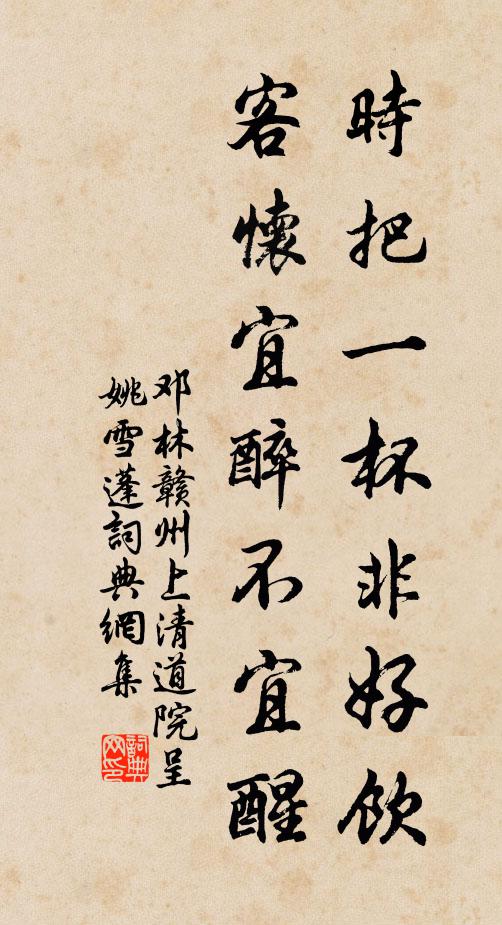 時把一杯非好飲
客懷宜醉不宜醒
邓林赣州上清道院呈
姚雪蓬詞典網集
詞典网印